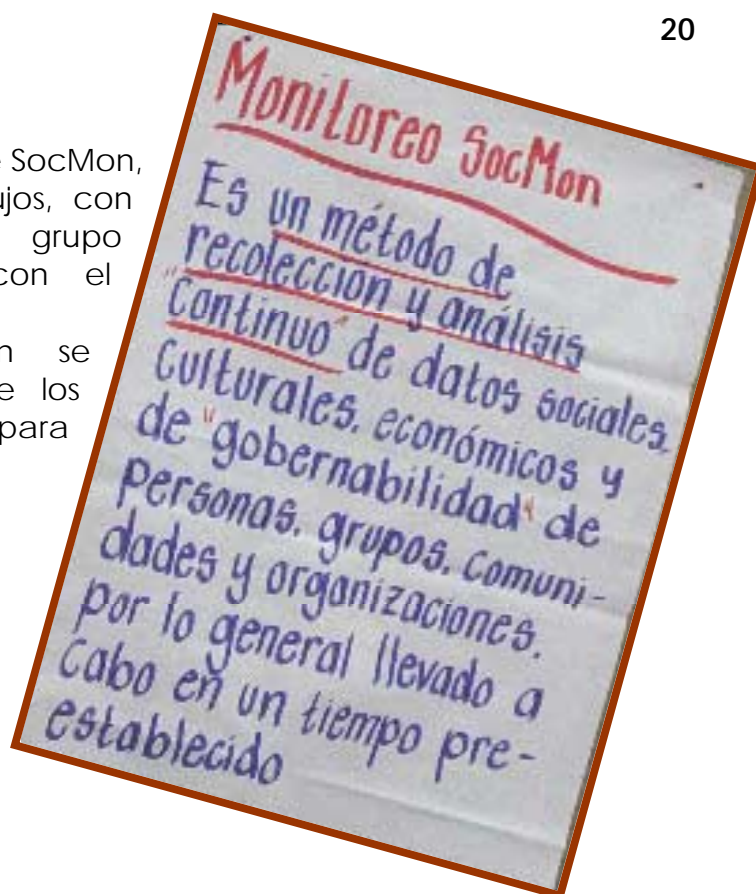 20
SocMon,
ujos, con
grupo
con el
n se
e los
para
Monitoreo SocMon
Es un método de
recolección y análisis
"Continuo" de datos sociales,
culturales, económicos y
de "gobernabilidad" de
personas, grupos, comuni-
dades y organizaciones,
por lo general llevado a
cabo en un tiempo pre-
establecido